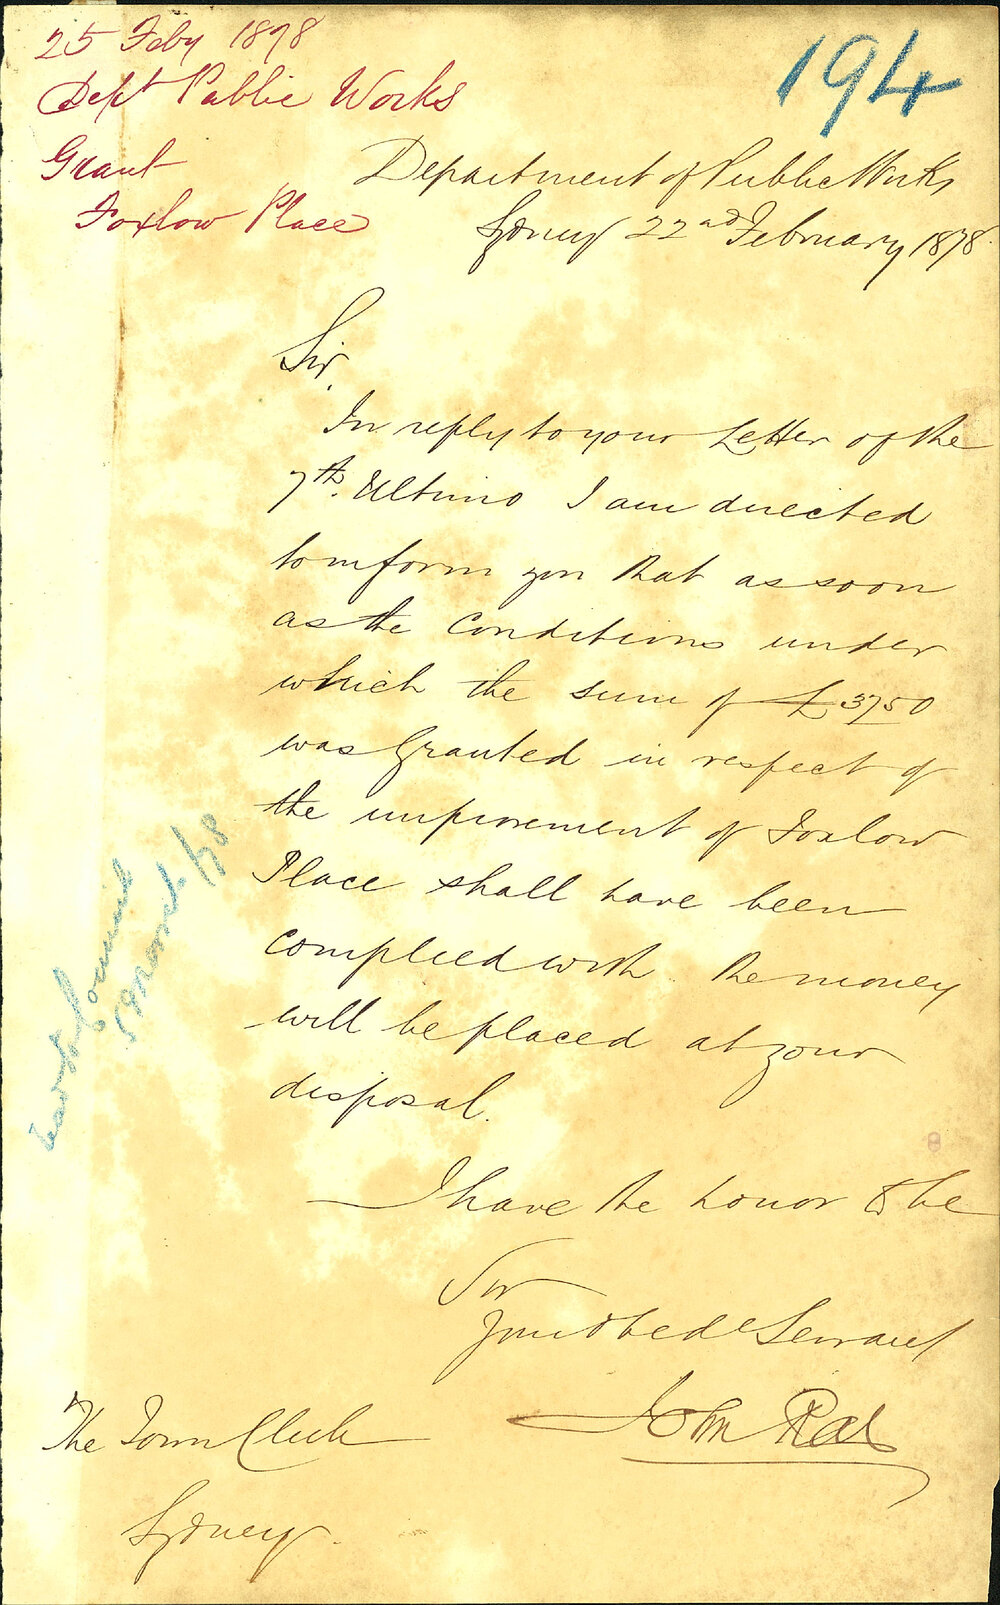 25 Feby 1878
Dept Public Works
Grant
Foxlow Place
194
Department of Public Works
Sydney 22nd February 1878
Sir,
In reply to your Letter of the
7th. Ultimo I am directed
to inform you that as soon
as the Conditions under
which the sum of £3750
was Granted in respect of
the improvement of Foxlow
Place shall have been
complied with the money
will be placed at your
disposal.
I have the honor to be
Sir
Your Obede Servant
John Rae
The Town Clerk
Sydney.
Council
5 March /78